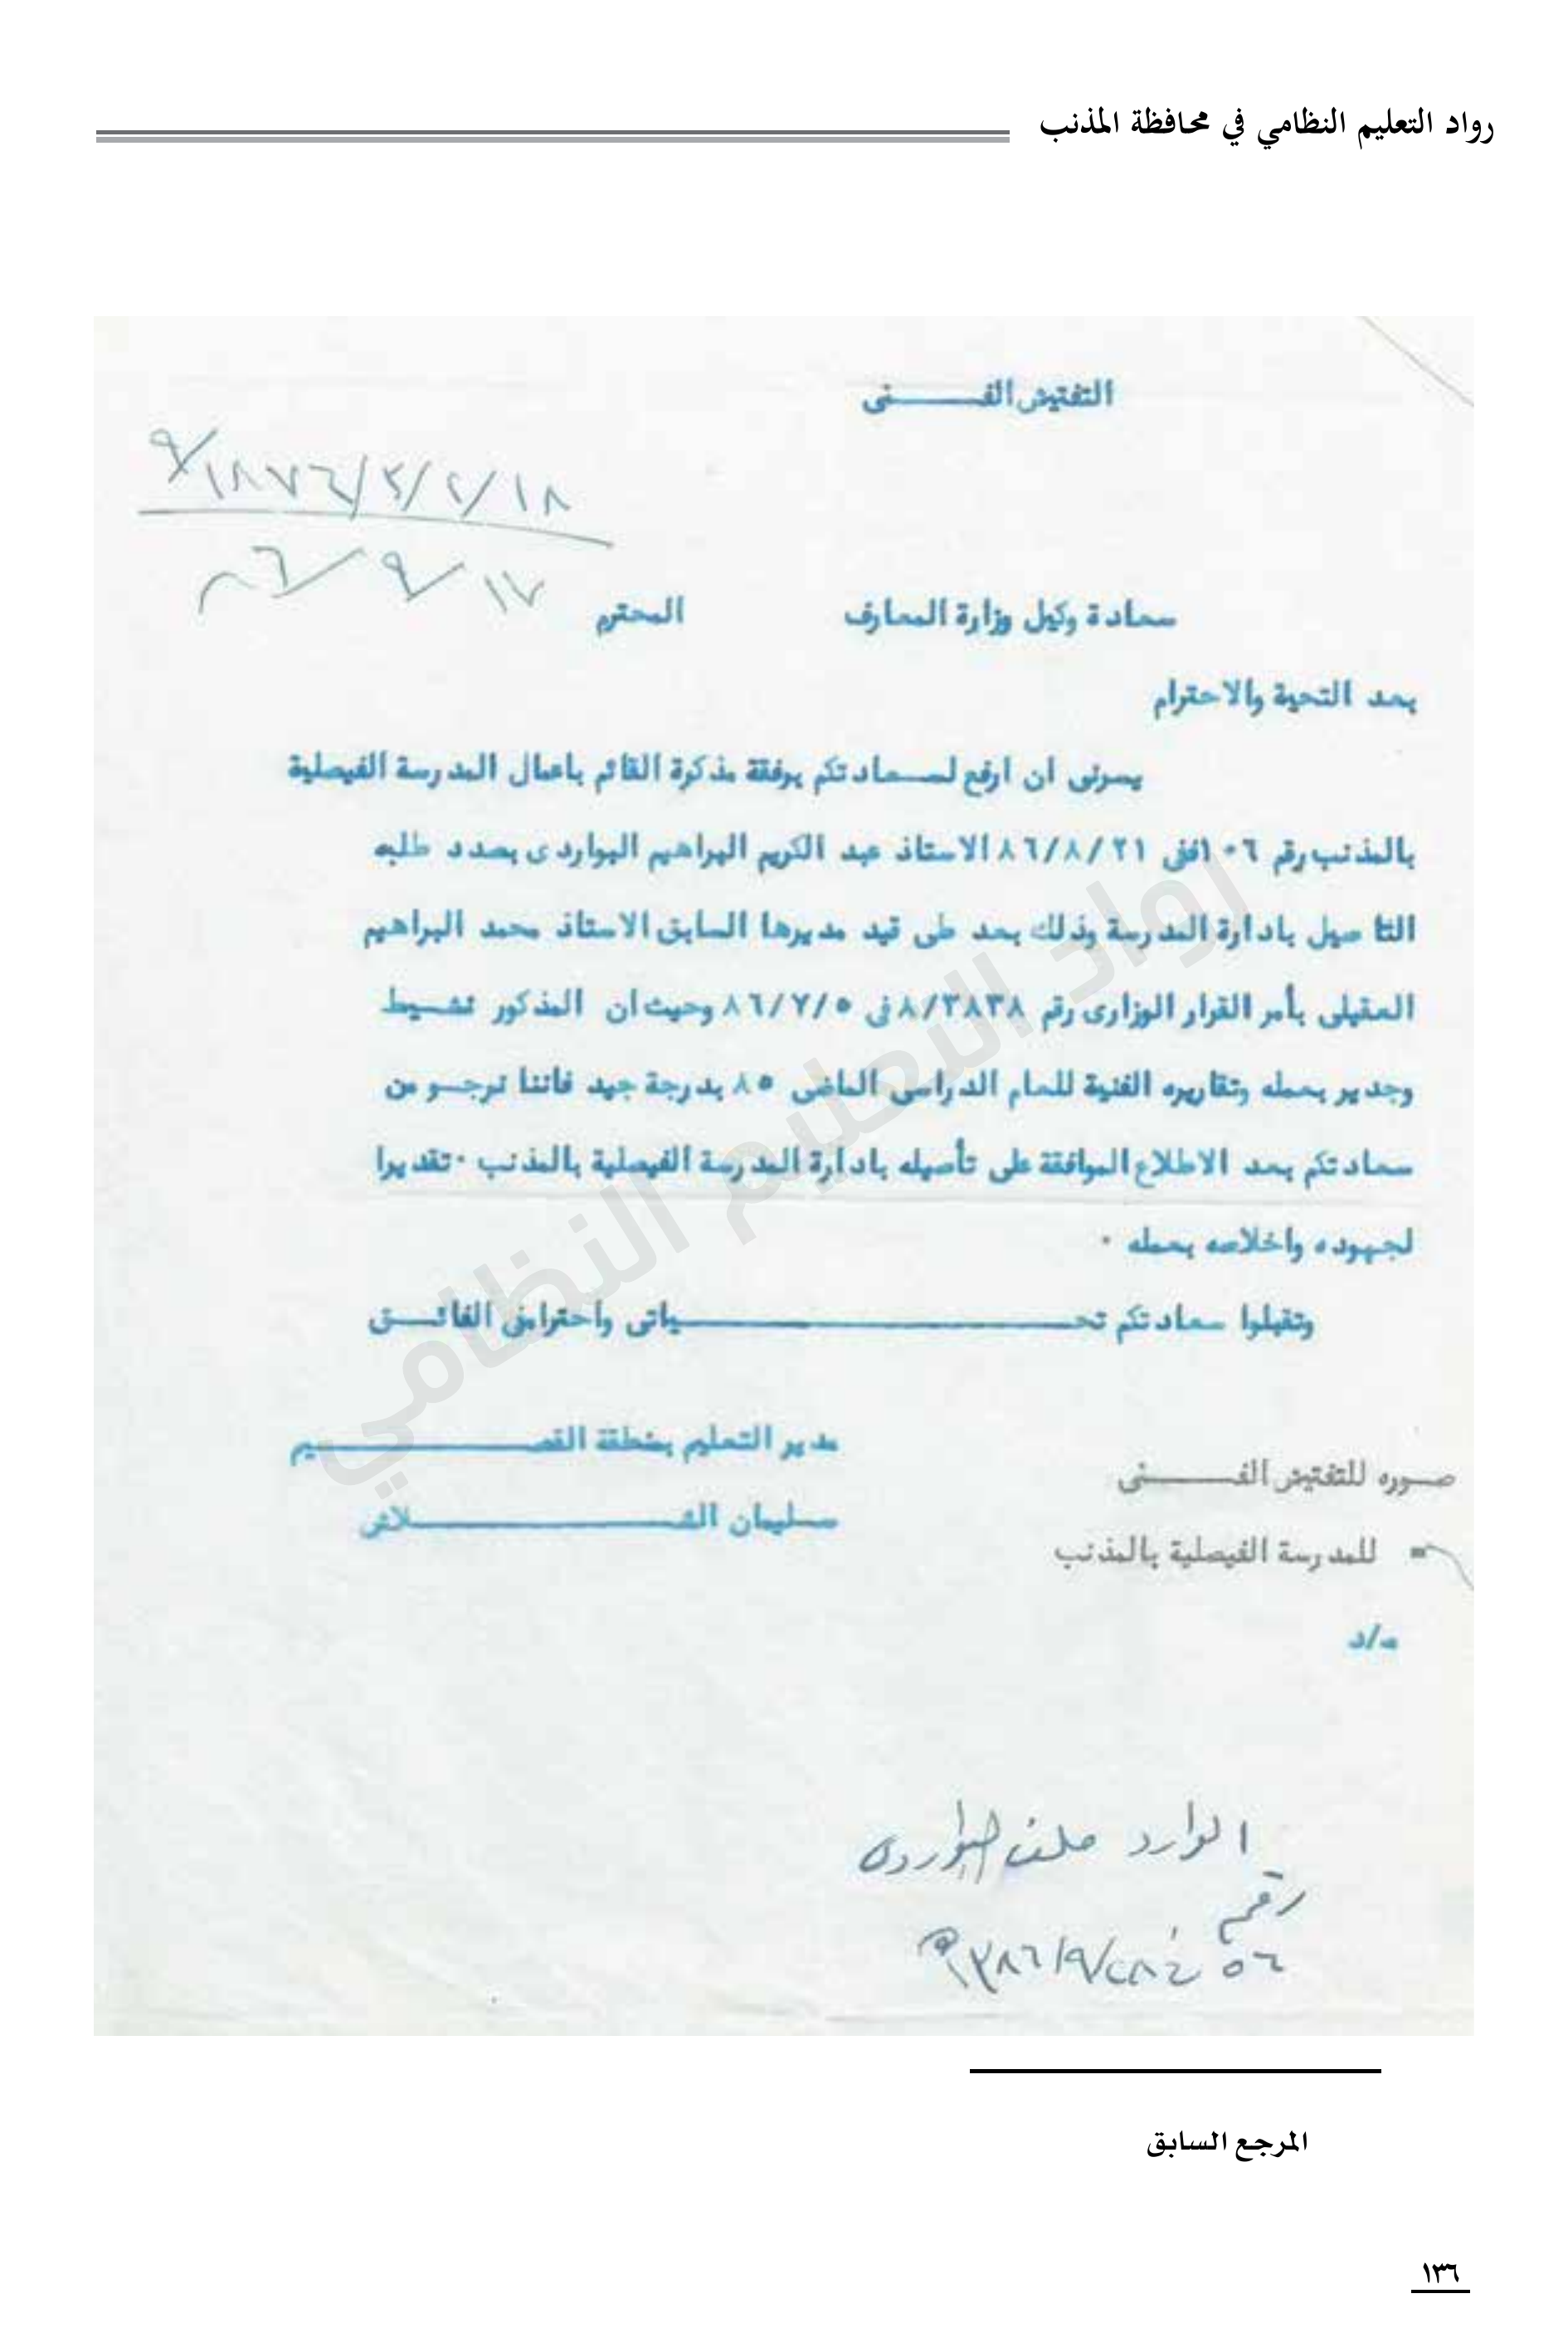 رواد التعليم النظامي في محافظة المذنب
التفتيش الفـــنى
١٨/٢/٣/١٨٧٦/٩
١٧/٩/٨٦
سعادة وكيل وزارة المعارف المحترم
بعد التحية والاحترام
يسرنى ان ارفع لسعادتكم برفقة مذكرة القائم باعمال المدرسة الفيصلية
بالمذنب رقم ١٠٦ففى ٨٦/٨/٢١ الاستاذ عبد الكريم البراهيم البواردى بصدد طلبه
التاصيل بادارة المدرسة وذلك بعد طى قيد مديرها السابق الاستاذ محمد البراهيم
العقيلى بأمر القرار الوزارى رقم ٨/٣٨٣٨ فى ٨٦/٧/٥ وحيث ان المذكور نشـيط
وجدير بعمله وتقاريره الفنية للعام الدراسى الماضى ٨٥ بدرجة جيد فاننا نرجـو من
سعادتكم بعد الاطلاع الموافقة على تأصيله بادارة المدرسة الفيصلية بالمذنب ٠ تقديرا
لجهوده واخلاصه بعمله ٠
وتقبلوا سعادتكم تحـــــــياتى واحترامى الفائـــق
مدير التعليم بمنطقة القصـــــــيم
سـليمان الشـــــــلاش
صـوره للتفتيش الفـــنى
= للمدرسة الفيصلية بالمذنب
م/د
الوارد ملف البواردى
رقم
٥٦ في ٢٨/٩/١٣٨٦هـ
المرجع السابق
١٣٦
رواد التعليم النظامي